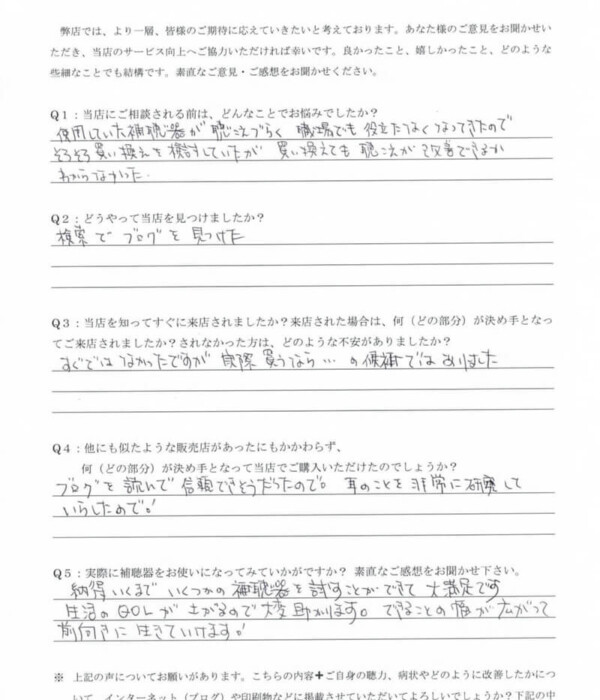 弊店では、より一層、皆様のご期待に応えていきたいと考えております。あなた様のご意見をお聞かせい
ただき、当店のサービス向上へご協力いただければ幸いです。良かったこと、嬉しかったこと、どのような
些細なことでも結構です。素直なご意見・ご感想をお聞かせください。
Q1：当店にご相談される前は、どんなことでお悩みでしたか？
使用していた補聴器が聴こえづらく 職場でも役立たなくなってきたので
そろそろ買い換えを検討していたが 買い換えても聴こえが改善できるか
わからなかった.
Q2：どうやって当店を見つけましたか？
検索でブログを見つけた
Q3：当店を知ってすぐに来店されましたか？来店された場合は、何（どの部分）が決め手となっ
てご来店されましたか？されなかった方は、どのような不安がありましたか？
すぐではなかったですが 実際買うなら… の候補ではありました
Q4：他にも似たような販売店があったにもかかわらず、
何（どの部分）が決め手となって当店でご購入いただけたのでしょうか？
ブログを読んで信頼できそうだったので。耳のことを非常に研究して
いらしたので！
Q5：実際に補聴器をお使いになってみていかがですか？ 素直なご感想をお聞かせ下さい。
納得いくまで いくつかの補聴器を試すことができて大満足です
生活のQOLが上がるので大変助かります。できることの幅が広がって
前向きに生きていけます！
※ 上記の声についてお願いがあります。こちらの内容＋ご自身の聴力、病状やどのように改善したかにつ
いて、インターネット（ブログ）や印刷物などに掲載させていただいてよろしいでしょうか？下記の中